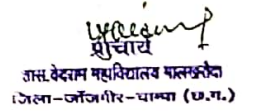 प्राचार्य
शास. वेदराम महाविद्यालय मालखरौदा
जिला-जाँजगीर-चाम्पा (छ.ग.)